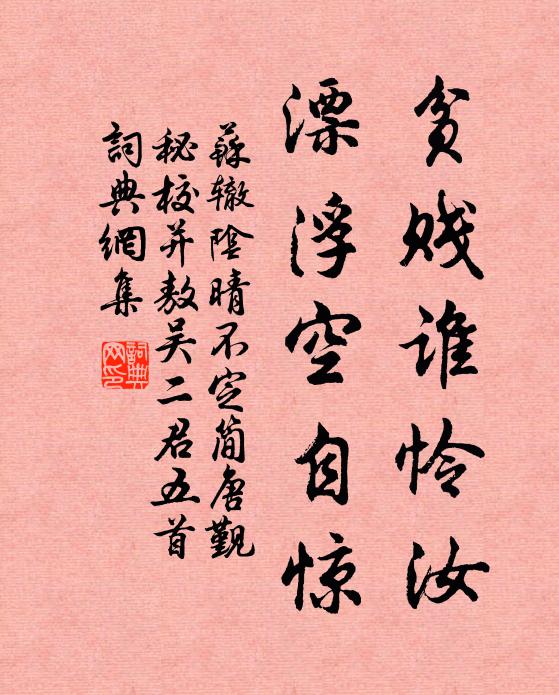 贫贱谁怜汝
漂浮空自惊
蘇辙陰晴不定简唐觐
秘校并敖吴二君五首
詞典網集
詞典
网印